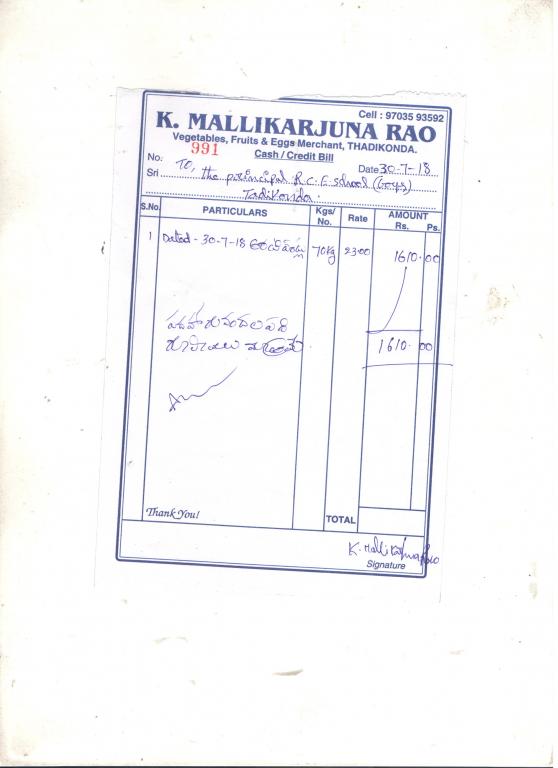 Cell : 97035 93592
K. MALLIKARJUNA RAO
Vegetables, Fruits & Eggs Merchant, THADIKONDA.
991
Cash / Credit Bill
No.
Date 30-7-18
Sri To, the principal R.C.E school (boys)
Tadikonda.
S.No. PARTICULARS Kgs/ No. Rate AMOUNT Rs. Ps.
1 Dated - 30-7-18 అరటిపండ్లు 70kg 23.00 1610.00
పదహారువందలపది
రూపాయలు మాత్రమే
1610.00
Thank You!
TOTAL
K. Mallikarjuna Rao
Signature